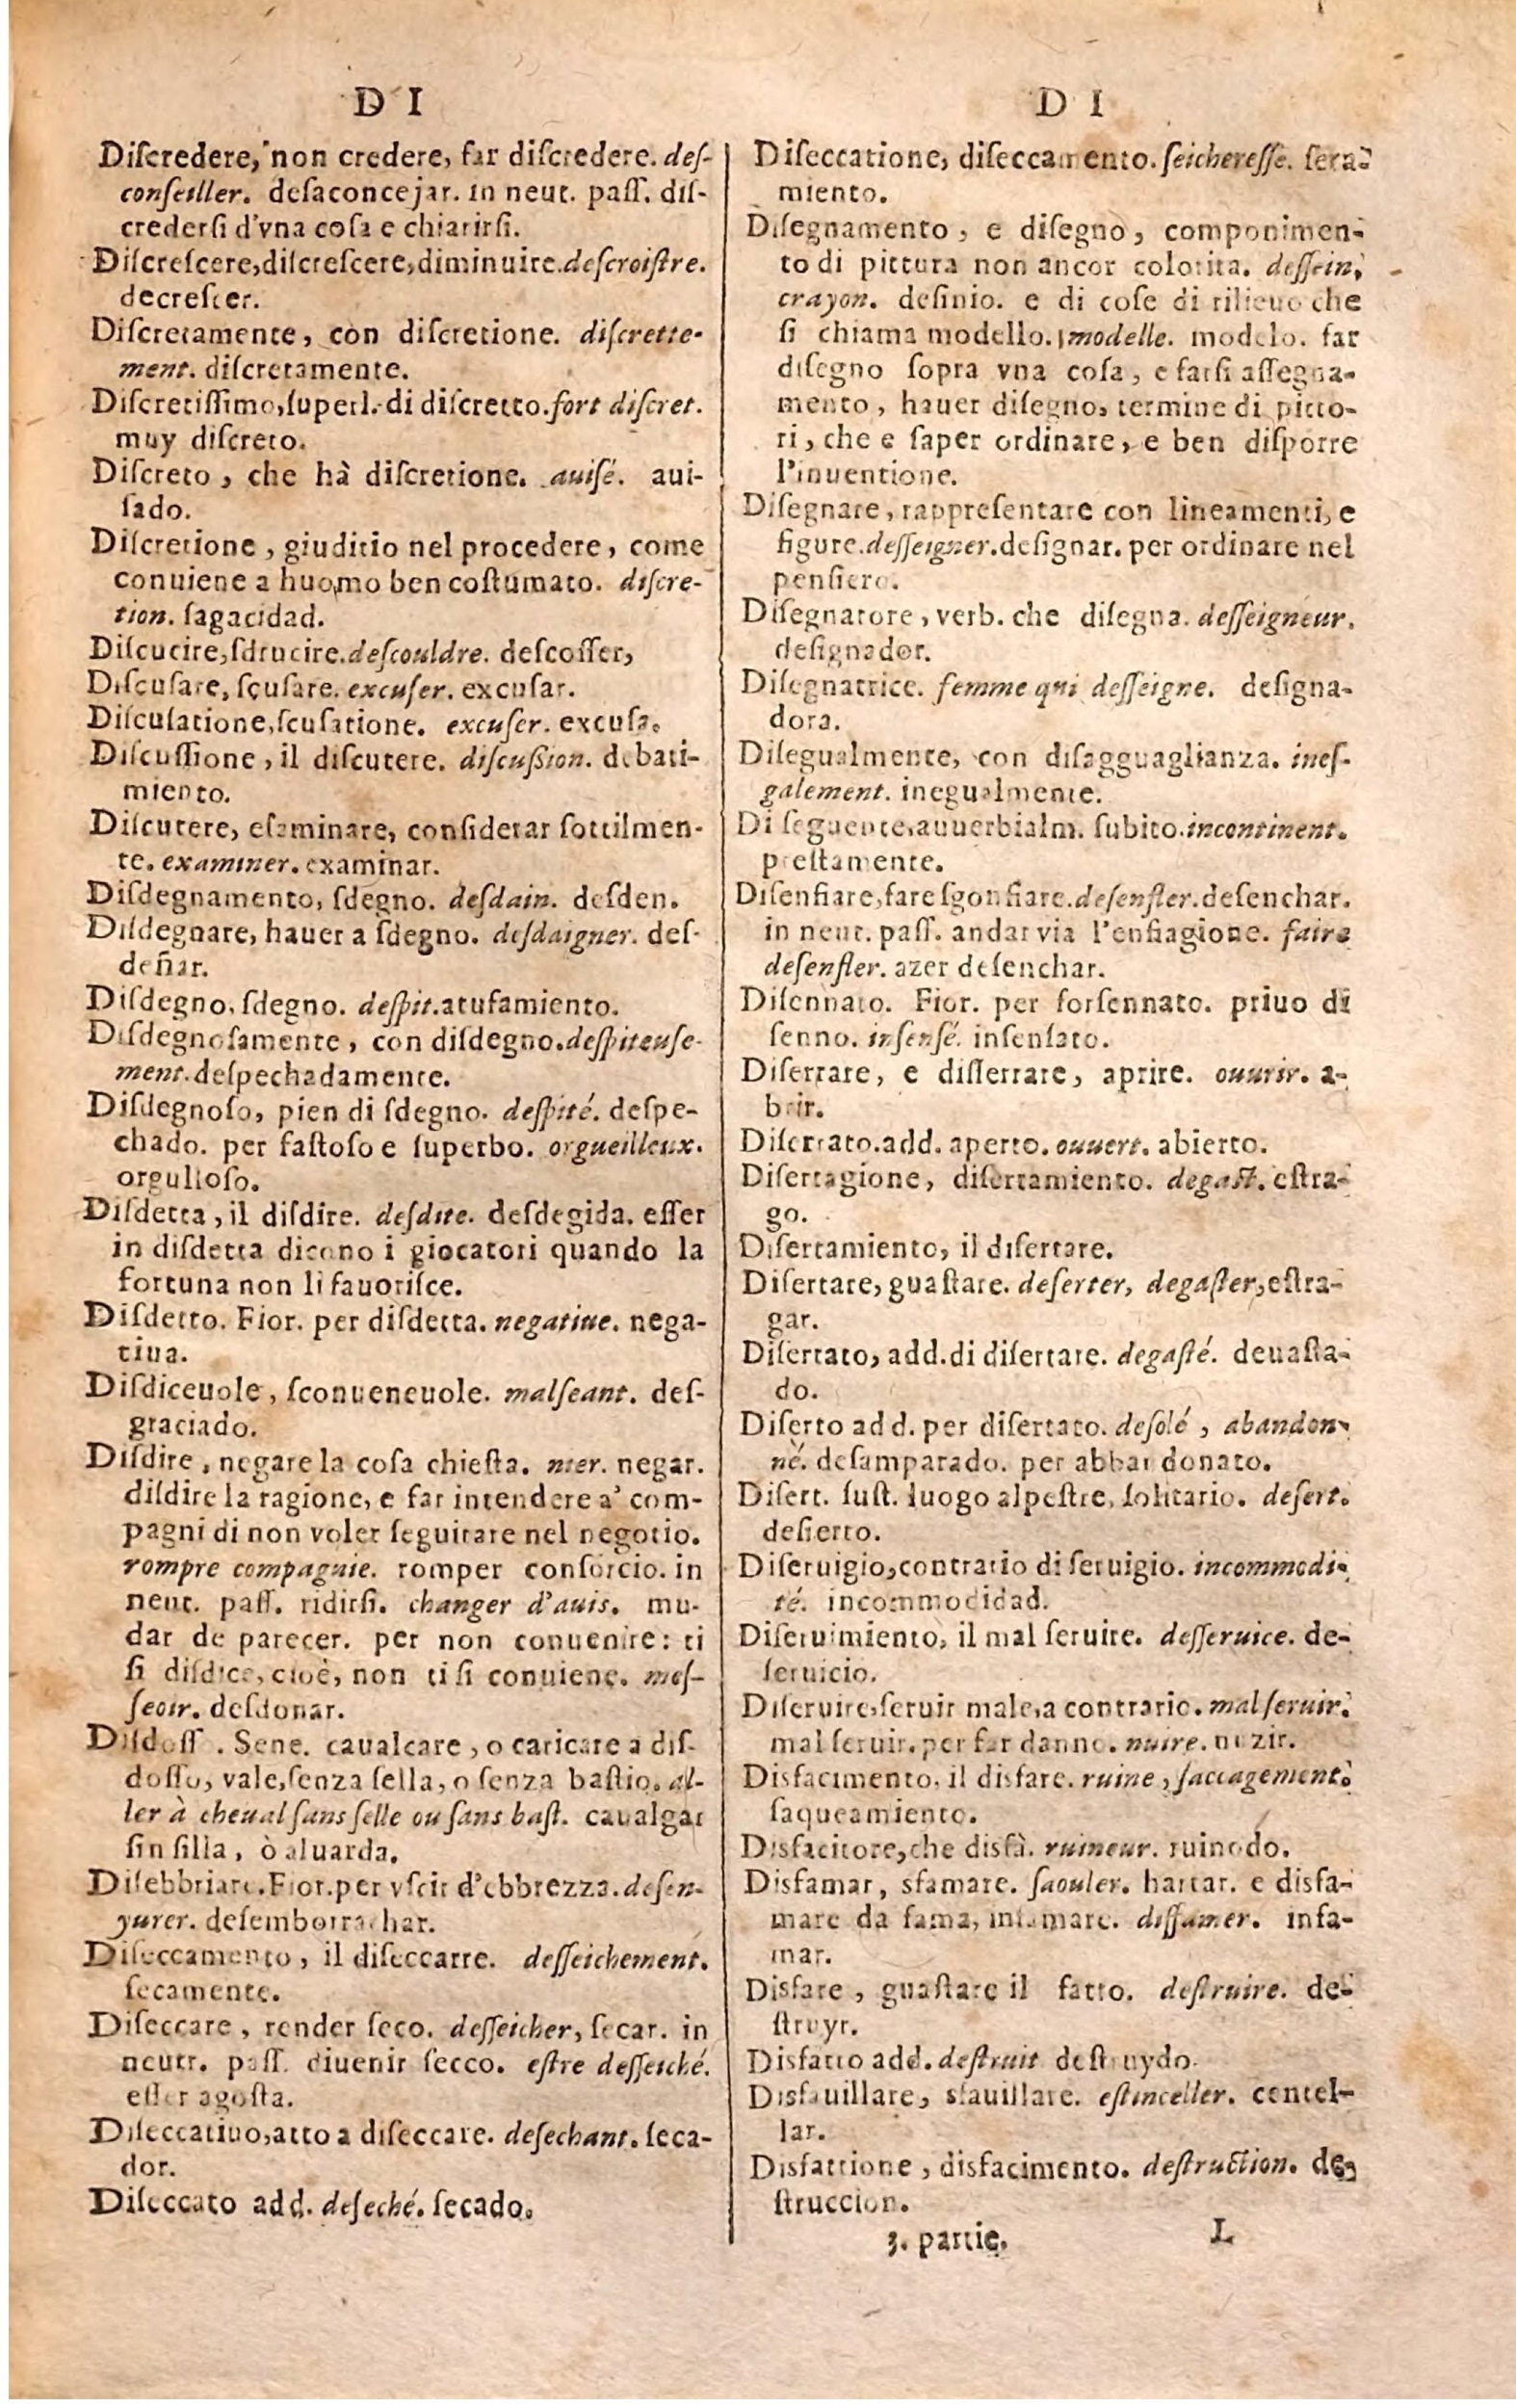 D I
Diſcredere, non credere, far diſcredere. deſ-
conſeiller. deſaconcejar. in neut. paſſ. diſ-
crederſi d'vna coſa e chiarirſi.
Diſcreſcere,diſcreſcere,diminuire.deſcroiſtre.
decreſcer.
Diſcretamente, con diſcretione. diſcrette-
ment. diſcretamente.
Diſcretiſſimo,ſuperl. di diſcretto.fort diſcret.
muy diſcreto.
Diſcreto, che hà diſcretione. auiſé. aui-
ſado.
Diſcretione, giuditio nel procedere, come
conuiene a huomo ben coſtumato. diſcre-
tion. ſagacidad.
Diſcucire,ſdrucire.deſcouldre. deſcoſſer,
Diſcuſare, ſcuſare. excuſer. excuſar.
Diſcuſatione,ſcuſatione. excuſer. excuſa.
Diſcuſſione, il diſcutere. diſcuſſion. debati-
miento.
Diſcutere, eſaminare, conſiderar ſottilmen-
te. examiner. examinar.
Diſdegnamento, ſdegno. deſdain. deſden.
Diſdegnare, hauer a ſdegno. deſdaigner. deſ-
deñar.
Diſdegno, ſdegno. deſpit.atufamiento.
Diſdegnoſamente, con diſdegno.deſpiteuſe-
ment.deſpechadamente.
Diſdegnoſo, pien di ſdegno. deſpité. deſpe-
chado. per faſtoſo e ſuperbo. orgueilleux.
orgulloſo.
Diſdetta, il diſdire. deſdite. deſdegida. eſſer
in diſdetta dicono i giocatori quando la
fortuna non li fauoriſce.
Diſdetto. Fior. per diſdetta. negatiue. nega-
tiua.
Diſdiceuole, ſconueneuole. malſeant. deſ-
graciado.
Diſdire, negare la coſa chieſta. nier. negar.
diſdire la ragione, e far intendere a' com-
pagni di non voler ſeguitare nel negotio.
rompre compagnie. romper conſorcio. in
neut. paſſ. ridirſi. changer d'auis. mu-
dar de parecer. per non conuenire: ti
ſi diſdice, cioè, non ti ſi conuiene. meſ-
ſeoir. deſdonar.
Diſdoſſ . Sene. caualcare, o caricare a diſ-
doſſo, vale,ſenza ſella, o ſenza baſtio. al-
ler à cheual ſans ſelle ou ſans baſt. caualgar
ſin ſilla, ò aluarda.
Diſebbriare.Fior.per vſcir d'ebbrezza.deſen-
yurer. deſemborrachar.
Diſeccamento, il diſeccarre. deſſeichement.
ſecamente.
Diſeccare, render ſeco. deſſeicher, ſecar. in
neutr. paſſ. diuenir ſecco. eſtre deſſeiché.
eſſer agoſta.
Diſeccatiuo,atto a diſeccare. deſechant. ſeca-
dor.
Diſeccato add. deſeché. ſecado.
D I
Diſeccatione, diſeccamento. ſeichereſſe. ſera-
miento.
Diſegnamento, e diſegno, componimen-
to di pittura non ancor colorita. deſſein,
crayon. deſinio. e di coſe di rilieuo che
ſi chiama modello. modelle. modelo. far
diſegno ſopra vna coſa, e farſi aſſegna-
mento, hauer diſegno, termine di pitto-
ri, che e ſaper ordinare, e ben diſporre
l'inuentione.
Diſegnare, rappreſentare con lineamenti, e
figure.deſſeigner.deſignar. per ordinare nel
penſiero.
Diſegnatore, verb. che diſegna. deſſeigneur.
deſignador.
Diſegnatrice. femme qui deſſeigne. deſigna-
dora.
Diſegualmente, con diſagguaglianza. ineſ-
galement. inegualmente.
Di ſeguente,auuerbialm. ſubito.incontinent.
preſtamente.
Diſenfiare,fare ſgonfiare.deſenfler.deſenchar.
in neut. paſſ. andar via l'enfiagione. faire
deſenfler. azer deſenchar.
Diſennato. Fior. per forſennato. priuo di
ſenno. inſenſé. inſenſato.
Diſerrare, e diſſerrare, aprire. ouurir. a-
brir.
Diſerrato.add. aperto. ouuert. abierto.
Diſertagione, diſertamiento. degaſt. eſtra-
go.
Diſertamiento, il diſertare.
Diſertare, guaſtare. deſerter, degaſter,eſtra-
gar.
Diſertato, add.di diſertare. degaſté. deuaſta-
do.
Diſerto add. per diſertato. deſolé, abandon-
né. deſamparado. per abbandonato.
Diſert. ſuſt. luogo alpeſtre, ſolitario. deſert.
deſierto.
Diſeruigio,contrario di ſeruigio. incommodi-
té. incommodidad.
Diſeruimiento, il mal ſeruire. deſſeruice. de-
ſeruicio.
Diſeruire,ſeruir male,a contrario. mal ſeruir.
mal ſeruir. per far danno. nuire. nuzir.
Disfacimento, il disfare. ruine, ſaccagement.
ſaqueamiento.
Disfacitore,che disfà. ruineur. ruinodo.
Disfamar, sfamare. ſaouler. hartar. e disfa-
mare da fama, infamare. diffamer. infa-
mar.
Disfare, guaſtare il fatto. deſtruire. de-
ſtruyr.
Disfatto add. deſtruit deſtruydo.
Disfauillare, sfauillare. eſtinceller. centel-
lar.
Disfattione, disfacimento. deſtruction. de-
ſtruccion.
3. partie. L